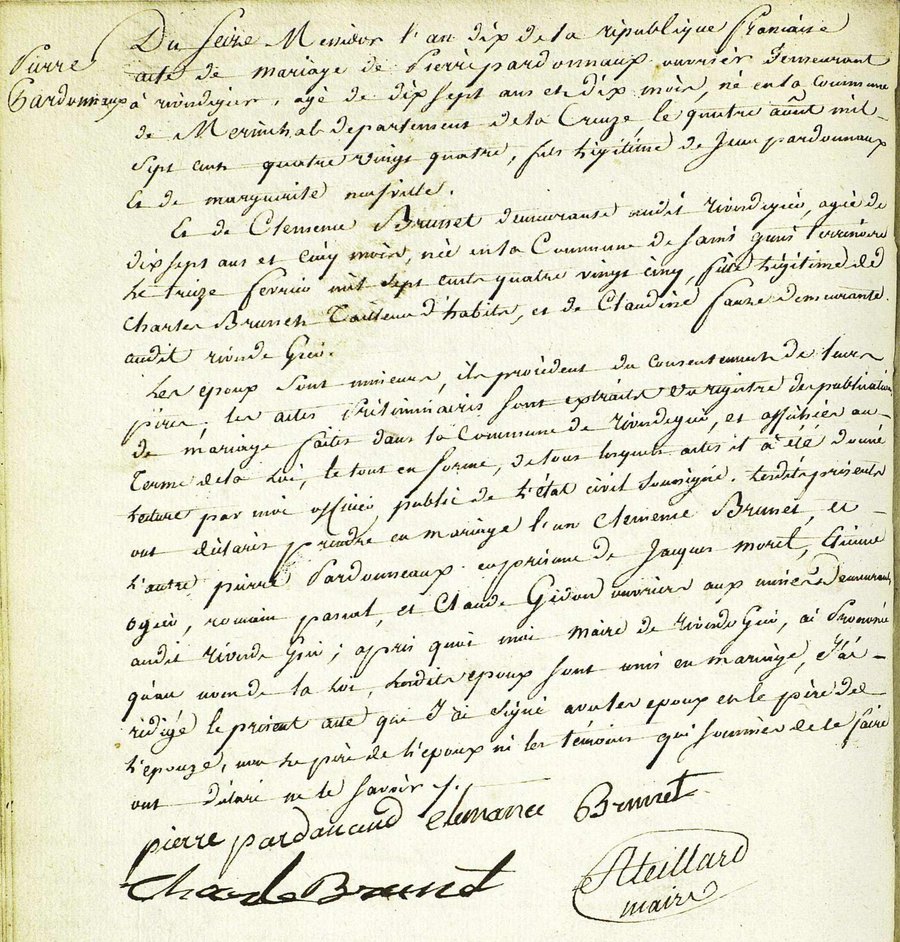 Pierre
Pardonnaux
Du seize Messidor l'an dix de la république française
acte de mariage de Pierre pardonnaux ouvrier demeurant
à rivedegier, agé de dix sept ans et dix mois, né en la commune
de Merinchal departement de la Creuze le quatre aout mil
sept cent quatre vingt quatre, fils légitime de Jean pardonnaux
et de marguerite neufville.
Et de Clemence Brunet demeurante audit rivedegier, agée de
dix sept ans et cinq mois, née en la Commune de saint genis terrenoire
le treize fevrier mil sept cent quatre vingt cinq, fille légitime de
Charles Brunet Tailleur d'habits, et de Claudine fauze demeurants
audit rive de Gier.
Les epoux sont mineurs, ils procédent du consentement de leurs
pères; les actes préliminaires sont extraits du registre des publications
de mariage faites dans la Commune de rivedegier, et affichées au
Terme de la Loi, le tout en forme, de tous lesquels actes il a été donné
lecture par moi officier public de l'état civil soussigné. lesdits présents
ont déclaré prendre en mariage l'un Clemence Brunet, et
l'autre pierre Pardonneaux en présence de Jacques morel, Etienne
ogier, romain pascal, et Claude Gidon ouvriers aux mines demeurants
audit rive de Gier; après quoi moi maire de rive de Gier, ai prononcé
qu'au nom de la loi, lesdits epoux sont unis en mariage, j'ai
rédigé le présent acte que j'ai signé avec les epoux et le père de
l'epouze, non le père de l'epoux ni les témoins qui sommés de le faire
ont déclaré ne le savoir /.
pierre pardonaud Clemance Brunet
Charle Brunet
Ateillard
maire